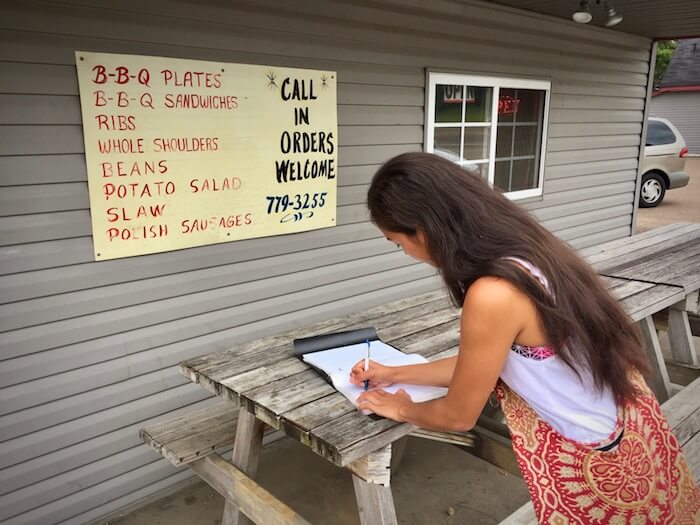 B-B-Q PLATES
B-B-Q SANDWICHES
RIBS
WHOLE SHOULDERS
BEANS
POTATO SALAD
SLAW
POLISH SAUSAGES
CALL
IN
ORDERS
WELCOME
779-3255
OPEN